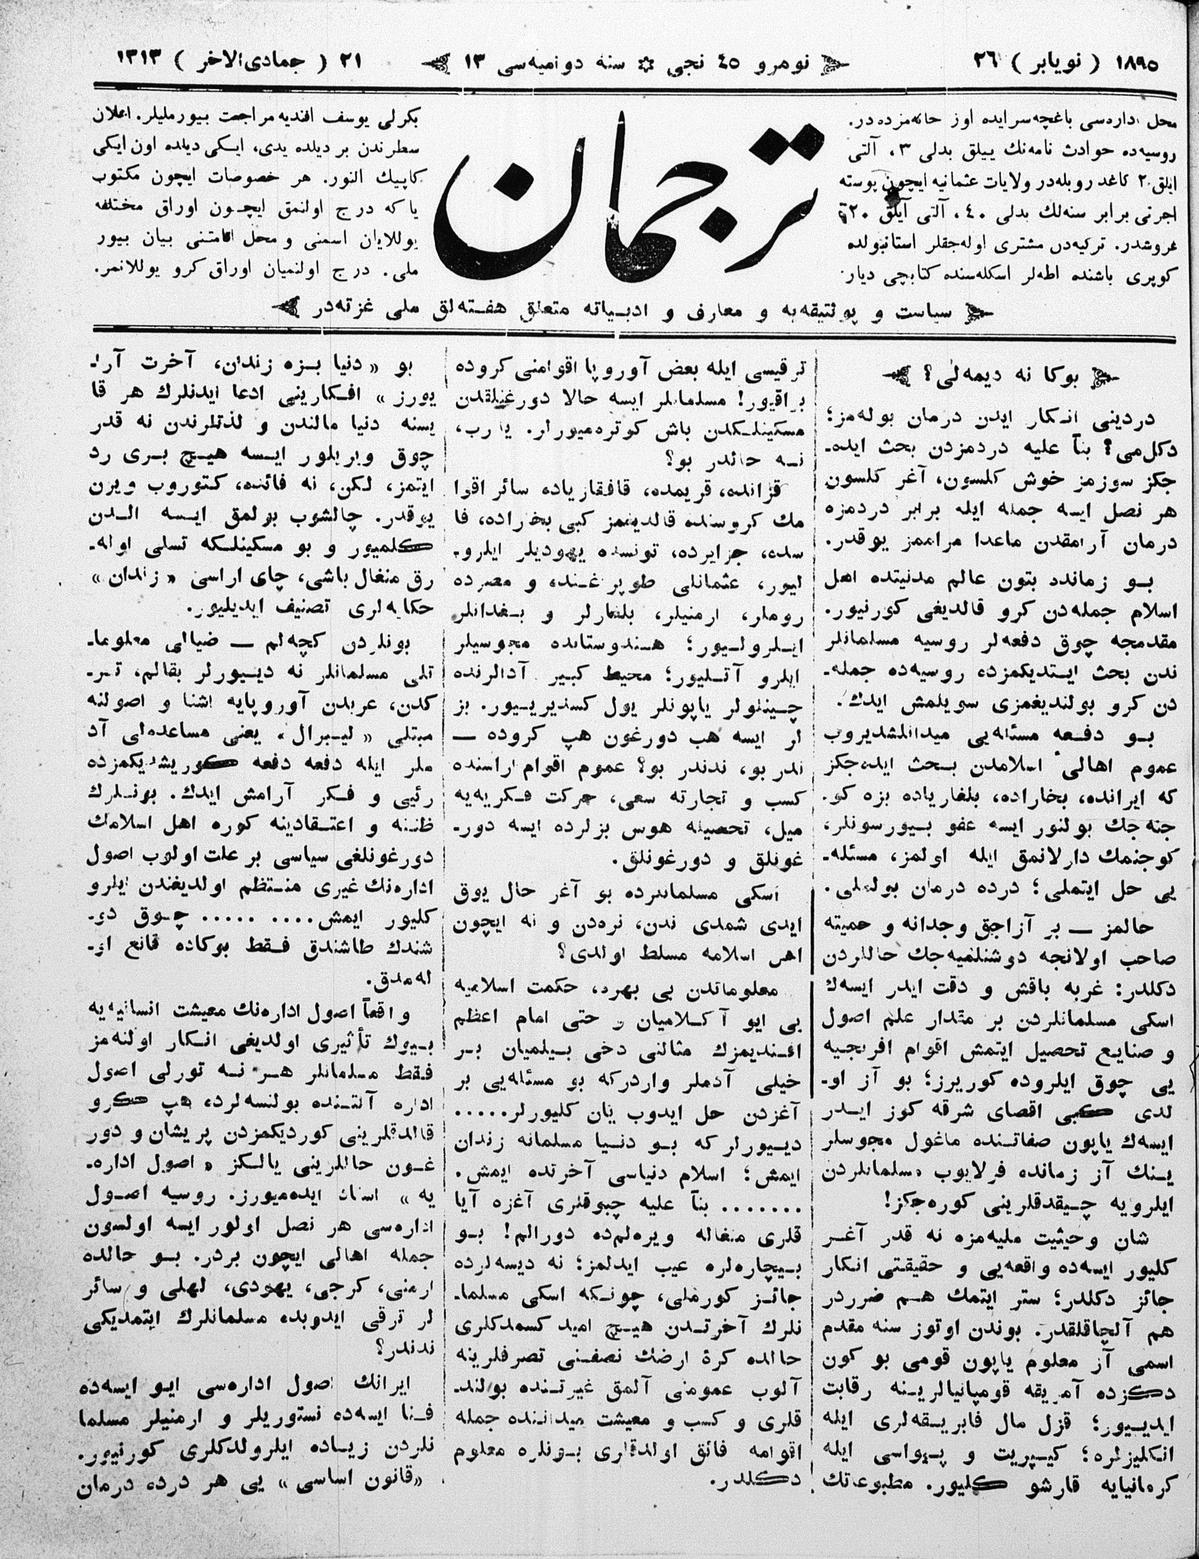 ١٨٩٥ ( نویابر ) ٢٦
نومرو ٤٥ نجی ✡ سنه دوامیه‌سی ١٣
٢١ ( جمادی الاخر ) ١٣١٣
محل اداره‌سی باغچه سرایده اوز خانه‌مزده در.
روسیه‌ده حوادث نامه‌نك ییللق بدلی ٣، آلتی
ایلق ٢٠ کاغد روبله‌در ولایات عثمانیه ایچون پوسته
اجرتی برابر سنه‌لك بدلی ٤٠، آلتی آیلق ٢٠
غروشدر. ترکیه‌دن مشتری اوله‌جقلر استانبولده
کوپری باشنده اطه‌لر اسکله‌سنده کتابچی دیار
ترجمان
بکرلی یوسف افندیه مراجعت بیورملیلر. اعلان
سطرندن بر دیلده یدی، ایکی دیلده اون ایکی
کاپیك النور. هر خصوصات ایچون مکتوب
یا که درج اولنمق ایچون اوراق مختلفه
یوللایان اسمنی و محل اقامتنی بیان بیور
ملی. درج اولنمیان اوراق کرو یوللانمز.
سیاست و پولتیقه‌یه و معارف و ادبیاته متعلق هفته‌لق ملی غزته‌در
بوکا نه دیمه‌لی؟
دردینی انکار ایدن درمان بوله‌مز؛
دکل‌می؟ بنآ علیه دردمزدن بحث ایده‌ـ
جکز سوزمز خوش کلسون، آغر کلسون
هر نصل ایسه جمله ایله برابر دردمزه
درمان آرامقدن ماعدا مراممز یوقدر.
بو زمانده بتون عالم مدنیتده اهل
اسلام جمله‌دن کرو قالدیغی کورنیور.
مقدمجه چوق دفعه‌لر روسیه مسلمانلر
ندن بحث ایتدیکمزده روسیه‌ده جمله‌ـ
دن کرو بولندیغمزی سویلمش ایدك.
بو دفعه مسئله‌یی میدانلشدیروب
عموم اهالی اسلامدن بحث ایده‌جکز
که ایرانده، بخاراده، بلغاریاده بزه کو.
جنه‌جك بولنور ایسه عفو بیورسونلر،
کوجنمك دارلانمق ایله اولمز، مسئله‌ـ
یی حل ایتملی؛ درده درمان بولملی.
حالمز — بر آزاجق وجدانه و حمیته
صاحب اولانجه دوشنلمیه‌جك حاللردن
دکلدر: غربه باقش و دقت ایدر ایسه‌ك
اسکی مسلمانلردن بر مقدار علم اصول
و صنایع تحصیل ایتمش اقوام افرنجیه
یی چوق ایلروده کوریرز؛ بو آز اوـ
لدی کبی اقصای شرقه کوز ایدر
ایسه‌ك یاپون صفاتنده ماغول مجوسلر
ینك آز زمانده فرلایوب مسلمانلردن
ایلرویه چیقدقلرینی کوره‌جکز!
شان وحیثیت ملیه‌مزه نه قدر آغر
کلیور ایسه‌ده واقعه‌یی و حقیقتی انکار
جائز دکلدر؛ ستر ایتمك هم ضرردر
هم آلچاقلقدر. بوندن اوتوز سنه مقدم
اسمی آز معلوم یاپون قومی بو کون
دکزده آمریقه قومپانیالرینه رقابت
ایدیور؛ قزل مال فابریقه‌لری ایله
انکلیزلره؛ کیپریت و پیواسی ایله
کرمانیایه قارشو کلیور. مطبوعاتك
ترقیسی ایله بعض آوروپا اقوامنی کروده
براقیور! مسلمانلر ایسه حالا دورغنلقدن
مسکینلکدن باش کوتره‌میورلر. یا رب،
نه حالدر بو؟
قزانده، قریمده، قافقازیاده سائر اقوا
مك کروسنده قالدیغمز کبی بخاراده، فا
سده، جزایرده، تونسده یهودیلر ایلروـ
لیور، عثمانلی طوپراغنده، و مصرده
روملر، ارمنیلر، بلغارلر و بغدانلر
ایلرولیور؛ هندوستانده مجوسیلر
ایلرو آتلیور؛ محیط کبیر آدالرنده
چینلولر یاپونلر یول کسدیریور. بز
لر ایسه هب دورغون هپ کروده —
ندر بو، ندندر بو؟ عموم اقوام اراسنده
کسب و تجارته سعی، حرکت فکریه‌یه
میل، تحصیله هوس بزلرده ایسه دورـ
غونلق و دورغونلق.
اسکی مسلمانلرده بو آغر حال یوق
ایدی شمدی ندن، نره‌دن و نه ایچون
اهل اسلامه مسلط اولدی؟
معلوماتدن بی بهره، حکمت اسلامیه
یی ایو آکلامیان و حتی امام اعظم
افندیمزك مثالنی دخی بیلمیان بر
خیلی آدملر واردرکه بو مسئله‌یی بر
آغزدن حل ایدوب یان کلیورلر.....
دیورلر که بو دنیا مسلمانه زندان
ایمش؛ اسلام دنیاسی آخرتده ایمش.
....... بنآ علیه چبوقلری آغزه آیا
قلری منغاله ویره‌لم‌ده دورالم! بو
بیچاره‌لره عیب ایدلمز؛ نه دیسه‌لرده
جائز کورملی، چونکه اسکی مسلماـ
نلرك آخرتدن هیچ امید کسمدکلری
حالده کرۀ ارضك نصفنی تصرفلرینه
آلوب عمومنی آلمق غیرتنده بولندـ
قلری و کسب و معیشت میداننده جمله
اقوامه فائق اولدقلری بونلره معلوم
دکلدر.
بو « دنیا بزه زندان، آخرت آراـ
یورز » افکارینی ادعا ایدنلرك هر قا
یسنه دنیا مالندن و لذتلرندن نه قدر
چوق ویریلور ایسه هیچ بری رد
ایتمز، لکن، نه فائده، کتوروب ویرن
یوقدر. چالشوب بولمق ایسه الدن
کلمیور و بو مسکینلکه تسلی اوله‌ـ
رق منغال باشی، چای اراسی « زندان »
حکایه‌لری تصنیف ایدیلیور.
بونلردن کچه‌لم — ضیالی معلوماـ
تلی مسلمانلر نه دییورلر بقالم، ترـ
کدن، عربدن آوروپایه اشنا و اصولنه
مبتلی « لیبرال » یعنی مساعده‌لی آد
ملر ایله دفعه دفعه کوریشدیکمزده
رئیی و فکر آرامش ایدك. بونلرك
ظننه و اعتقادینه کوره اهل اسلامك
دورغونلغی سیاسی بر علت اولوب اصول
اداره‌نك غیری منتظم اولدیغندن ایلرو
کلیور ایمش.... ..... چوق دوـ
شندك طاشندق فقط بوکاده قانع اوـ
له‌مدق.
واقعآ اصول اداره‌نك معیشت انسانیه‌یه
بیوك تأثیری اولدیغی انکار اولنه‌مز
فقط مسلمانلر هر نه تورلی اصول
اداره آلتنده بولنسه‌لرده، هپ کرو
قالدقلرینی کوردیکمزدن پریشان و دور
غون حاللرینی یالکز « اصول اداره‌ـ
یه » اسناد ایده‌میورز. روسیه اصول
اداره‌سی هر نصل اولور ایسه اولسون
جمله اهالی ایچون بردر. بو حالده
ارمنی، کرجی، یهودی، لهلی و سائر
لر ترقی ایدوبده مسلمانلرك ایتمدیکی
ندندر؟
ایرانك اصول اداره‌سی ایو ایسه‌ده
فنا ایسه‌ده نستوریلر و ارمنیلر مسلما
نلردن زیاده ایلرولدکلری کورنیور.
« قانون اساسی » یی هر درده درمان